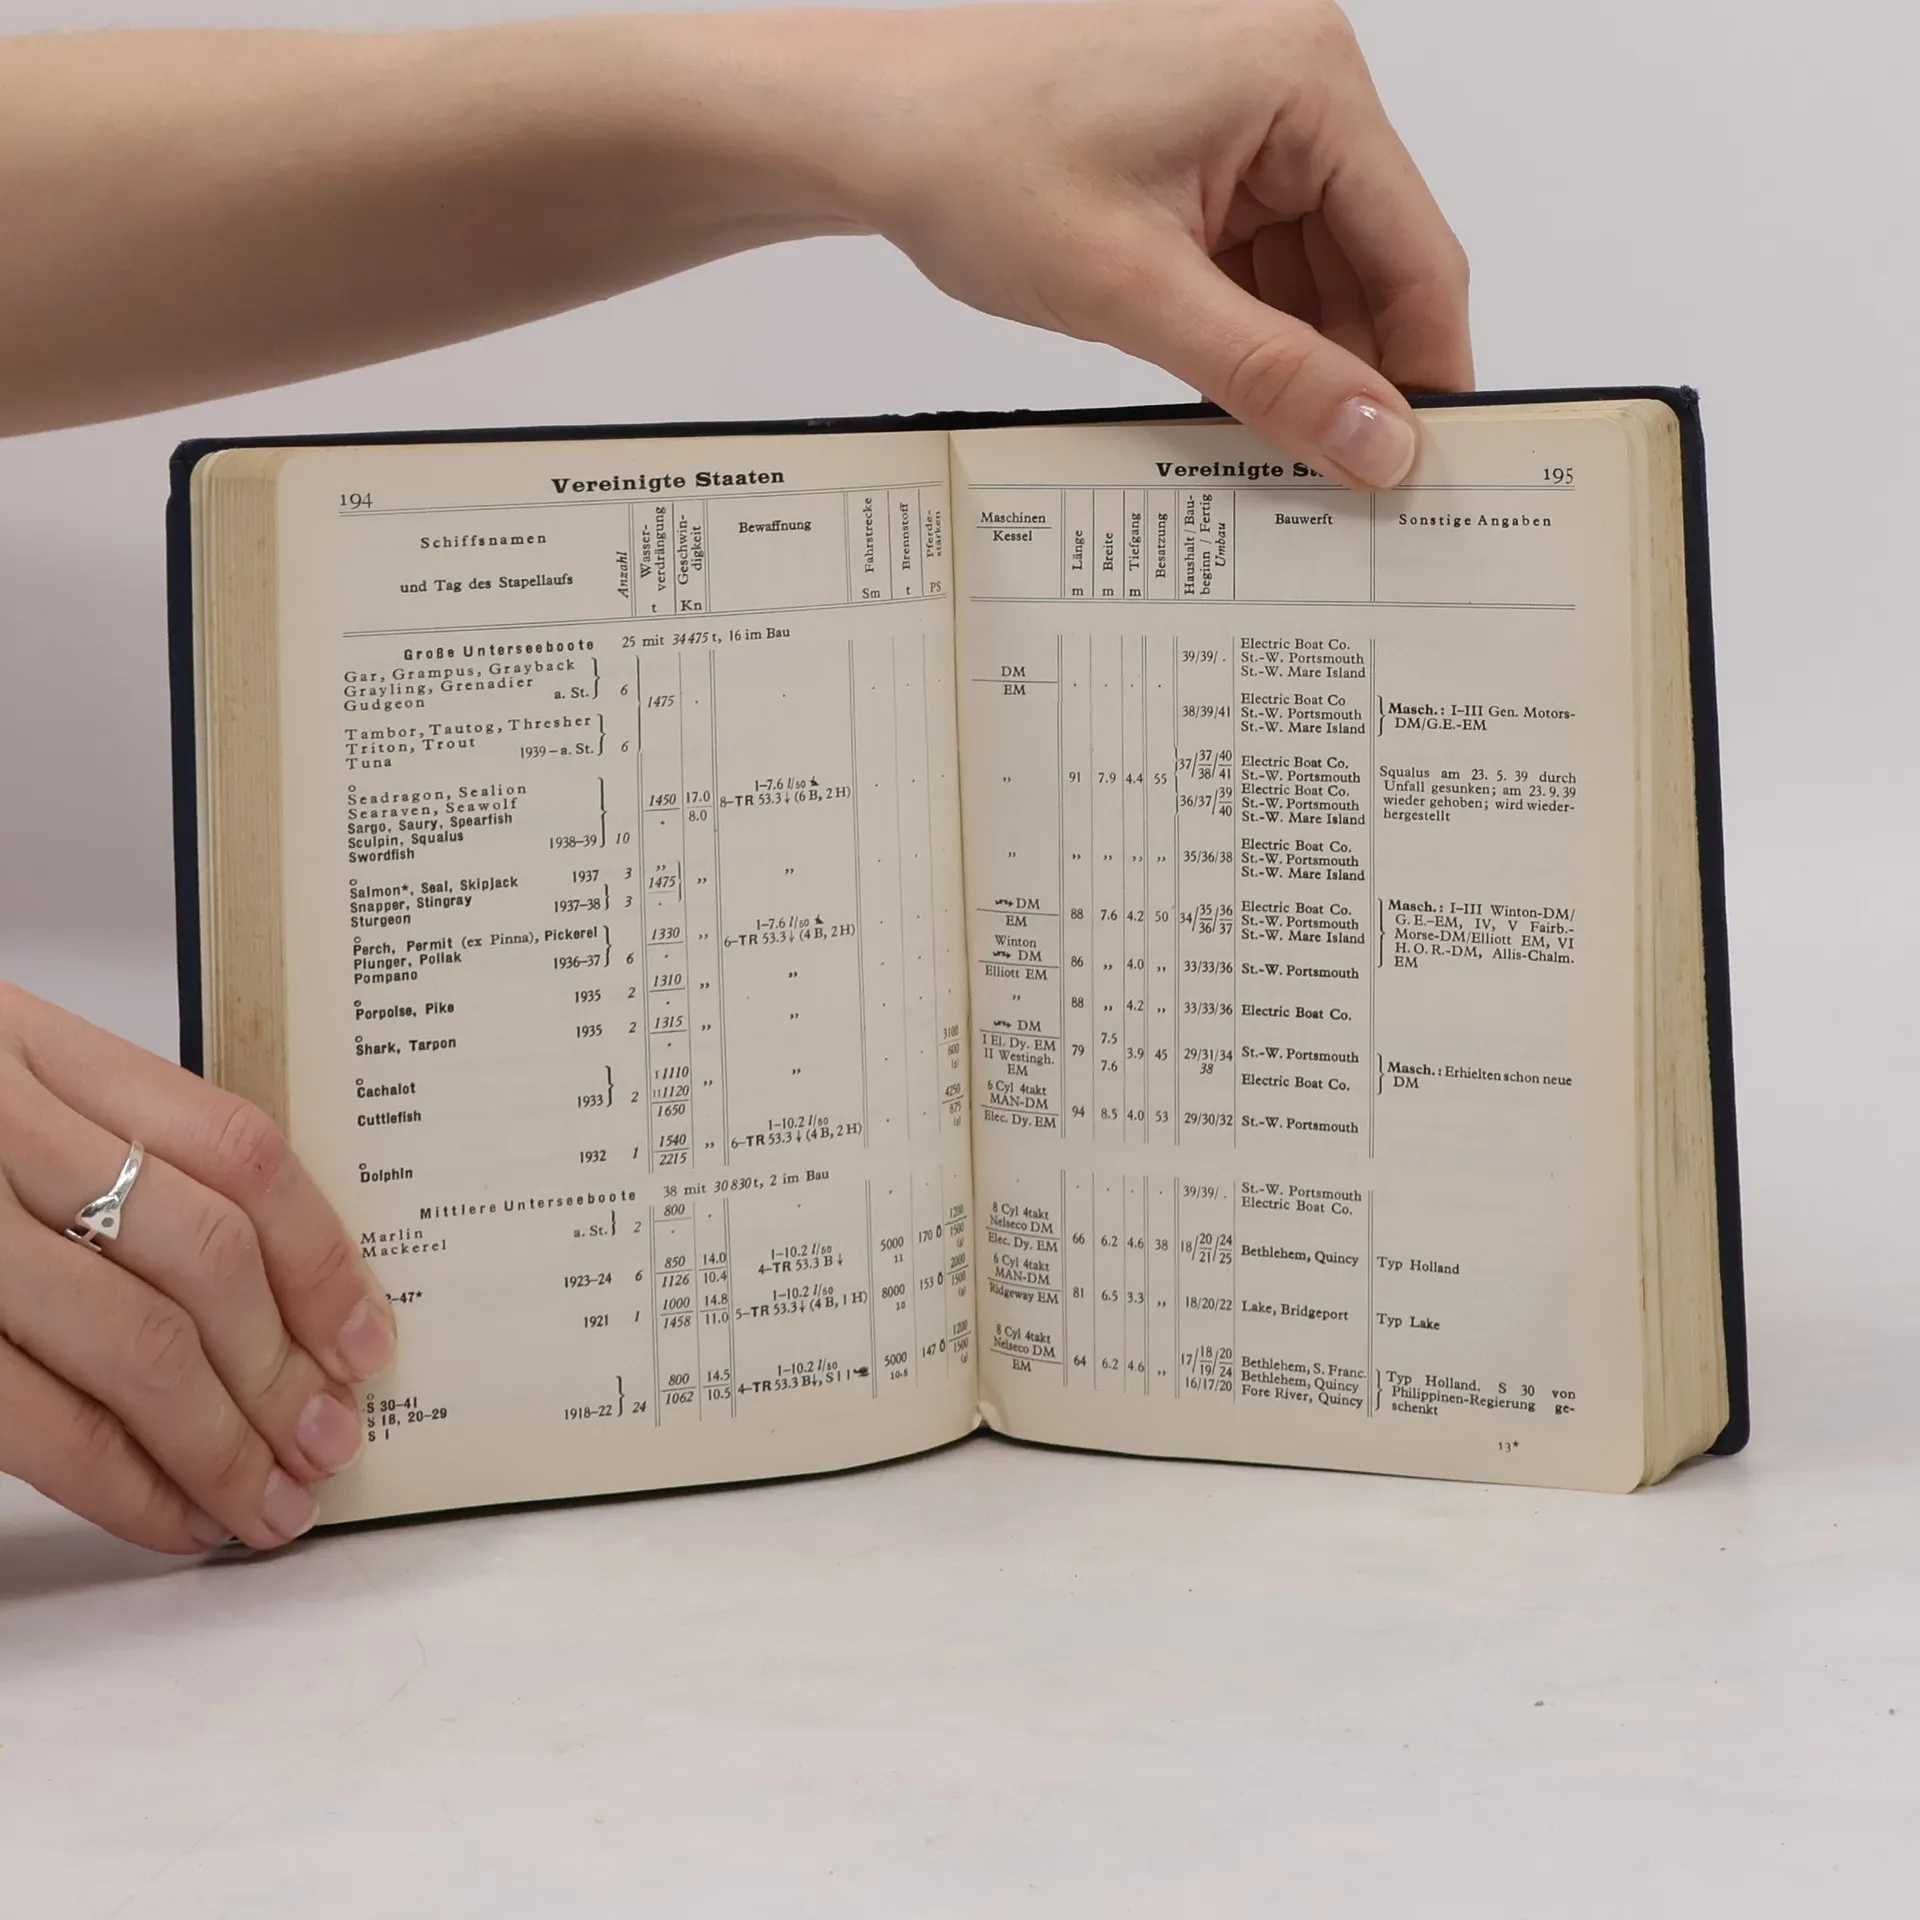 194
Vereinigte Staaten
Schiffsnamen
und Tag des Stapellaufs
Anzahl
Wasser-
verdrängung
t
Geschwin-
digkeit
Kn
Bewaffnung
Fahrstrecke
Sm
Brennstoff
t
Pferde-
stärken
PS
Große Unterseeboote 25 mit 34475 t, 16 im Bau
Gar, Grampus, Grayback
Grayling, Grenadier a. St. 6
Gudgeon
1475 .
Tambor, Tautog, Thresher
Triton, Trout 1939–a. St. 6
Tuna
Seadragon, Sealion
Searaven, Seawolf
Sargo, Saury, Spearfish
Sculpin, Squalus 1938–39 10
Swordfish
1450 17.0 1–7.6 l/50
. 8.0 8–TR 53.3↓ (6 B, 2 H)
Salmon*, Seal, Skipjack 1937 3 ,,
Snapper, Stingray 1937–38 3 1475 ,, ,,
Sturgeon
Perch, Permit (ex Pinna), Pickerel
Plunger, Pollak 1936–37 6
Pompano
1330 ,, 1–7.6 l/50
. 6–TR 53.3↓ (4 B, 2 H)
Porpoise, Pike 1935 2 1310 ,, ,,
Shark, Tarpon 1935 2 1315 ,, ,,
3100
800
Cachalot I 1110
Cuttlefish 1933 2 II 1120 ,, ,,
1650
4250
875
Dolphin 1932 1 1540 ,, 1–10.2 l/50
2215 6–TR 53.3↓ (4 B, 2 H)
Mittlere Unterseeboote 38 mit 30830 t, 2 im Bau
Marlin
Mackerel a. St. 2 800 .
–47* 1923–24 6 850 14.0 1–10.2 l/50 5000 170 Ö 1200
1126 10.4 4–TR 53.3 B↓ 11 1500
1921 1 1000 14.8 1–10.2 l/50 8000 153 Ö 2000
1458 11.0 5–TR 53.3↓ (4 B, 1 H) 10 1500
S 30–41
S 18, 20–29 1918–22 24
S 1
800 14.5 1–10.2 l/50 5000 147 Ö 1200
1062 10.5 4–TR 53.3 B↓, S 1 1 10.5 1500
Vereinigte
195
Maschinen
Kessel
Länge
m
Breite
m
Tiefgang
m
Besatzung
Haushalt / Bau-
beginn / Fertig
Umbau
Bauwerft
Sonstige Angaben
Electric Boat Co.
39/39/ . St.-W. Portsmouth
St.-W. Mare Island
DM
EM
Electric Boat Co
38/39/41 St.-W. Portsmouth
St.-W. Mare Island
Masch.: I–III Gen. Motors-
DM/G.E.-EM
,, 91 7.9 4.4 55
37/37/40 Electric Boat Co.
38/41 St.-W. Portsmouth
Electric Boat Co.
36/37/39 St.-W. Portsmouth
40 St.-W. Mare Island
Squalus am 23. 5. 39 durch
Unfall gesunken; am 23. 9. 39
wieder gehoben; wird wieder-
hergestellt
Electric Boat Co.
,, ,, ,, ,, ,, 35/36/38 St.-W. Portsmouth
St.-W. Mare Island
DM
EM
88 7.6 4.2 50 34/35/36 Electric Boat Co.
36/37 St.-W. Portsmouth
St.-W. Mare Island
Masch.: I–III Winton-DM/
G. E.–EM, IV, V Fairb.-
Morse-DM/Elliott EM, VI
H. O. R.-DM, Allis-Chalm.
EM
Winton
DM
Elliott EM
86 ,, 4.0 ,, 33/33/36 St.-W. Portsmouth
,, 88 ,, 4.2 ,, 33/33/36 Electric Boat Co.
DM
I El. Dy. EM
II Westingh.
EM
79 7.5 3.9 45 29/31/34 St.-W. Portsmouth
7.6 38 Electric Boat Co.
Masch.: Erhielten schon neue
DM
6 Cyl 4takt
MAN-DM
Elec. Dy. EM
94 8.5 4.0 53 29/30/32 St.-W. Portsmouth
. . . . . 39/39/ . St.-W. Portsmouth
Electric Boat Co.
8 Cyl 4takt
Nelseco DM
Elec. Dy. EM
66 6.2 4.6 38 18/20/24 Bethlehem, Quincy Typ Holland
21/25
6 Cyl 4takt
MAN-DM
Ridgeway EM
81 6.5 3.3 ,, 18/20/22 Lake, Bridgeport Typ Lake
8 Cyl 4takt
Nelseco DM
EM
64 6.2 4.6 ,, 17/18/20 Bethlehem, S. Franc.
19/24 Bethlehem, Quincy
16/17/20 Fore River, Quincy
Typ Holland. S 30 von
Philippinen-Regierung ge-
schenkt
13*